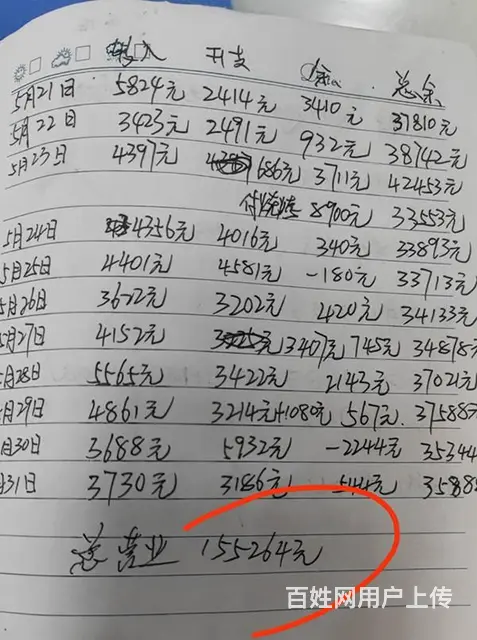 收入 开支 余 总余
5月21日 5824元 2414元 3410元 37810元
5月22日 3423元 2491元 932元 38742元
5月23日 4397元 686元 3711元 42453元
8900元 33553元
5月24日 4356元 4016元 340元 33893元
5月25日 4401元 4581元 -180元 33713元
5月26日 3622元 3202元 420元 34133元
5月27日 4152元 3407元 745元 34878元
5月28日 5565元 3422元 2143元 37021元
月29日 4861元 3214元+1080元 567元. 37588元
月30日 3688元 5932元 -2244元 35344
月31日 3730元 3186元 544元 35888
总营业 155264元
百姓网用户上传